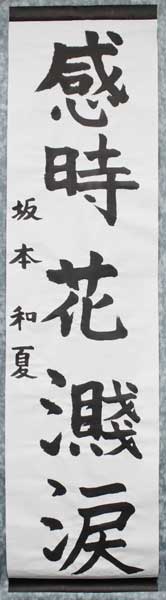 感時花濺涙
坂本和夏